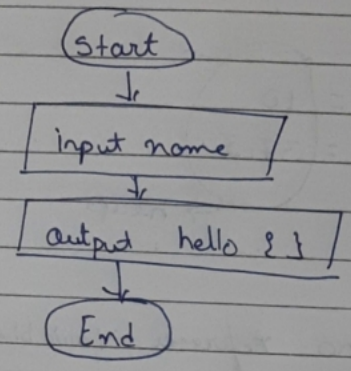 Start
input name
output hello { }
End